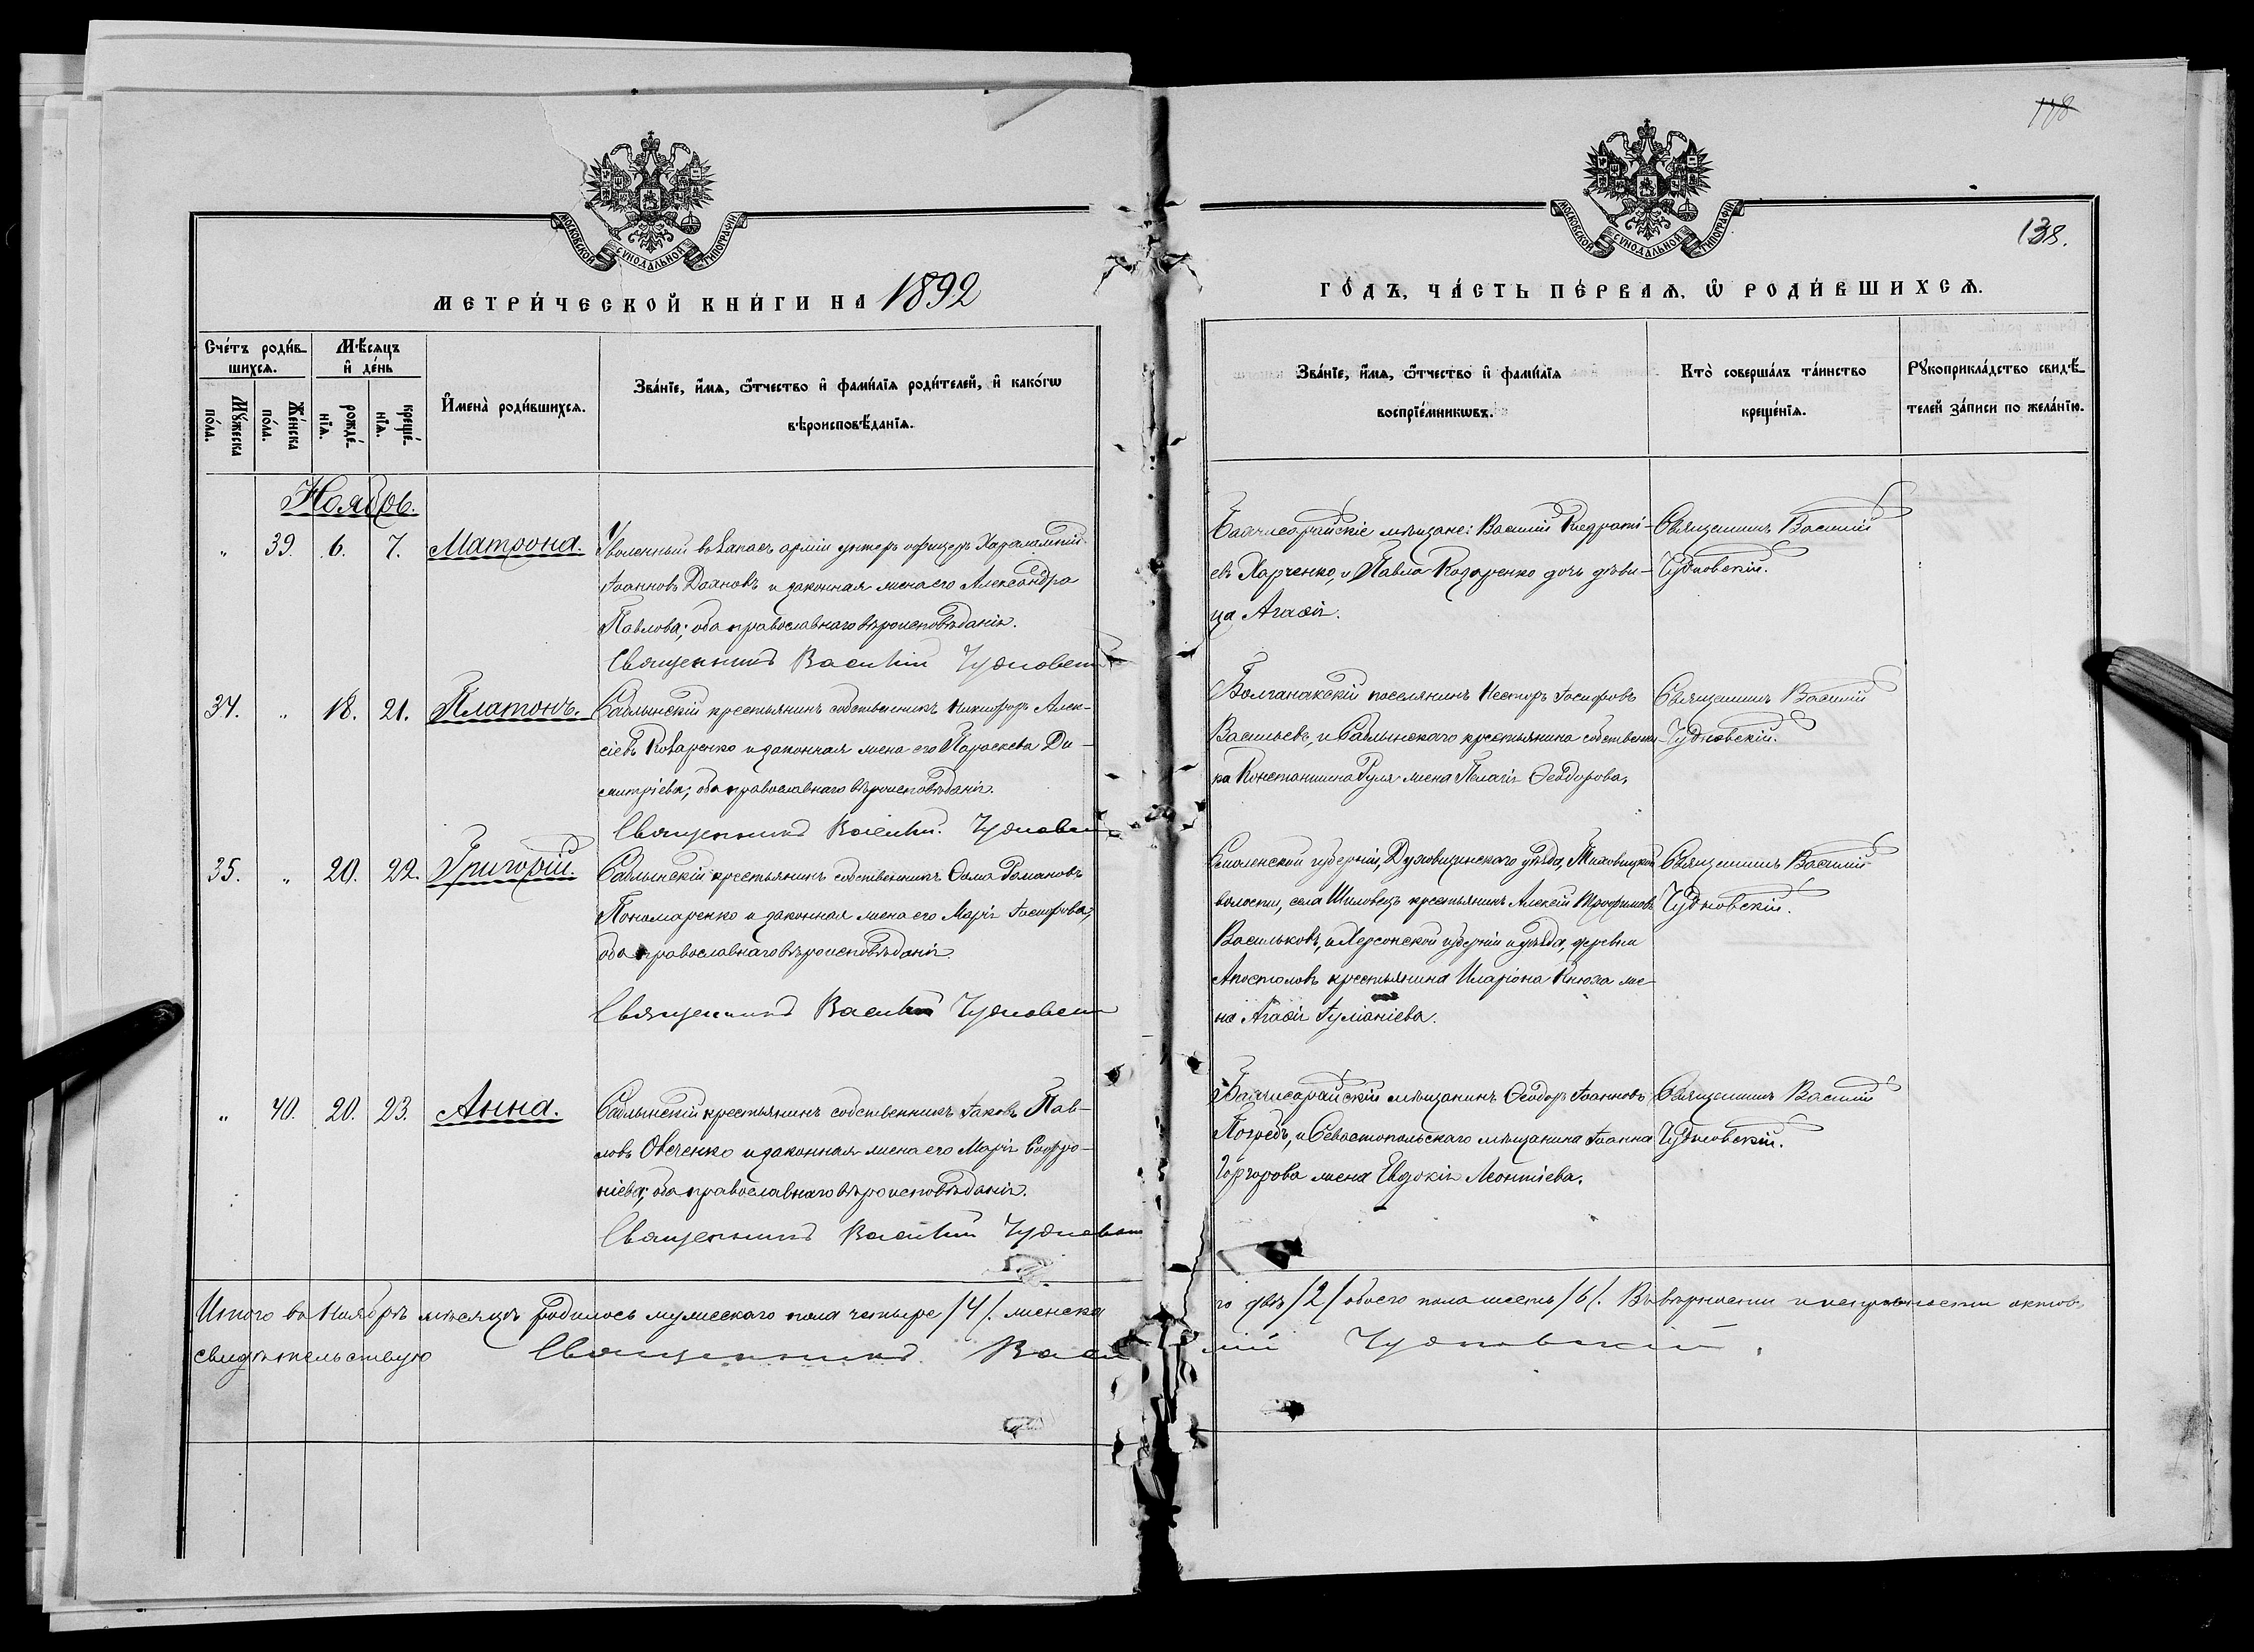 118
138.
МОСКОВСКОЙ СѴНОДАЛЬНОЙ ТИПОГРАФІИ
МОСКОВСКОЙ СѴНОДАЛЬНОЙ ТИПОГРАФІИ
МЕТРИ́ЧЕСКОЙ КНИ́ГИ НА 1892
ГО́ДЪ, ЧА́СТЬ ПЕ́РВАѦ, Ѡ РОДИ́ВШИХСѦ.
Сче́тъ роди́в-
шихсѧ.
Мꙋ́жеска по́ла.
Же́нска по́ла.
Мѣ́сяцъ
и҆ де́нь
рожде́-
нїѧ.
креще́-
нїѧ.
И҆мена̀ роди́вшихсѧ.
Зва́нїе, и҆́мѧ, ѻ҆́тчество и҆ фами́лїѧ роди́телей, и҆ како́гѡ
вѣроисповѣ́данїѧ.
Зва́нїе, и҆́мѧ, ѻ҆́тчество и҆ фами́лїѧ
воспрїе́мникѡвъ.
Кто̀ соверша́лъ та́инство
креще́нїѧ.
Рꙋкоприкла́дство свидѣ́-
телей за́писи по жела́нїю.
Ноябрь.
„ 39. 6. 7. Матрона.
Уволенный въ запасъ арміи унтеръ офицеръ Харалампій
Іоанновъ Даяновъ и законная жена его Александра
Павлова; оба православнаго вѣроисповѣданія.
Священникъ Василій Чудновскій
Бахчисарайскіе мѣщане: Василій Кодраті-
евъ Харченко, и Павла Козаренко дочь дѣви-
ца Агафія.
Священникъ Василій
Чудновскій.
34. „ 18. 21. Платонъ.
Саблынскій крестьянинъ собственникъ Никифоръ Алек-
сіевъ Коваренко и законная жена его Параскева Ди-
митріева; оба православнаго вѣроисповѣданія.
Священникъ Василій Чудновскій
Болганакскій поселянинъ Несторъ Іосифовъ
Васильевъ, и Саблынскаго крестьянина собственни-
ка Константина Руля жена Пелагія Ѳеодорова.
Священникъ Василій
Чудновскій.
35. „ 20. 22. Григорій.
Саблынскій крестьянинъ собственникъ Ѳома Романовъ
Пономаренко и законная жена его Марія Іосифова;
оба православнаго вѣроисповѣданія.
Священникъ Василій Чудновскій
Смоленской губерніи, Духовщинскаго уѣзда,
волости, села Шиловецъ крестьянинъ Алексій Трофимовъ
Васильковъ, и Херсонской губерніи и уѣзда, деревни
Апостоловъ крестьянина Иларіона Кнюха же-
на Агафія Іуліаніева.
Священникъ Василій
Чудновскій.
„ 40. 20. 23. Анна.
Саблынскій крестьянинъ собственникъ Іаковъ Пав-
ловъ Овченко и законная жена его Марія Софро-
ніева; оба православнаго вѣроисповѣданія.
Священникъ Василій Чудновскій
Бахчисарайскій мѣщанинъ Ѳеодоръ Іоанновъ
Погребъ, и Севастопольскаго мѣщанина Іоанна
жена Евдокія Леонтіева.
Священникъ Василій
Чудновскій.
Итого въ Ноябрѣ мѣсяцѣ родилось мужескаго пола четыре /4/. женска
го двѣ /2/ обоего пола шесть /6/. Въ вѣрности и исправности актовъ
свидѣтельствую Священникъ Васи
лій Чудновскій.